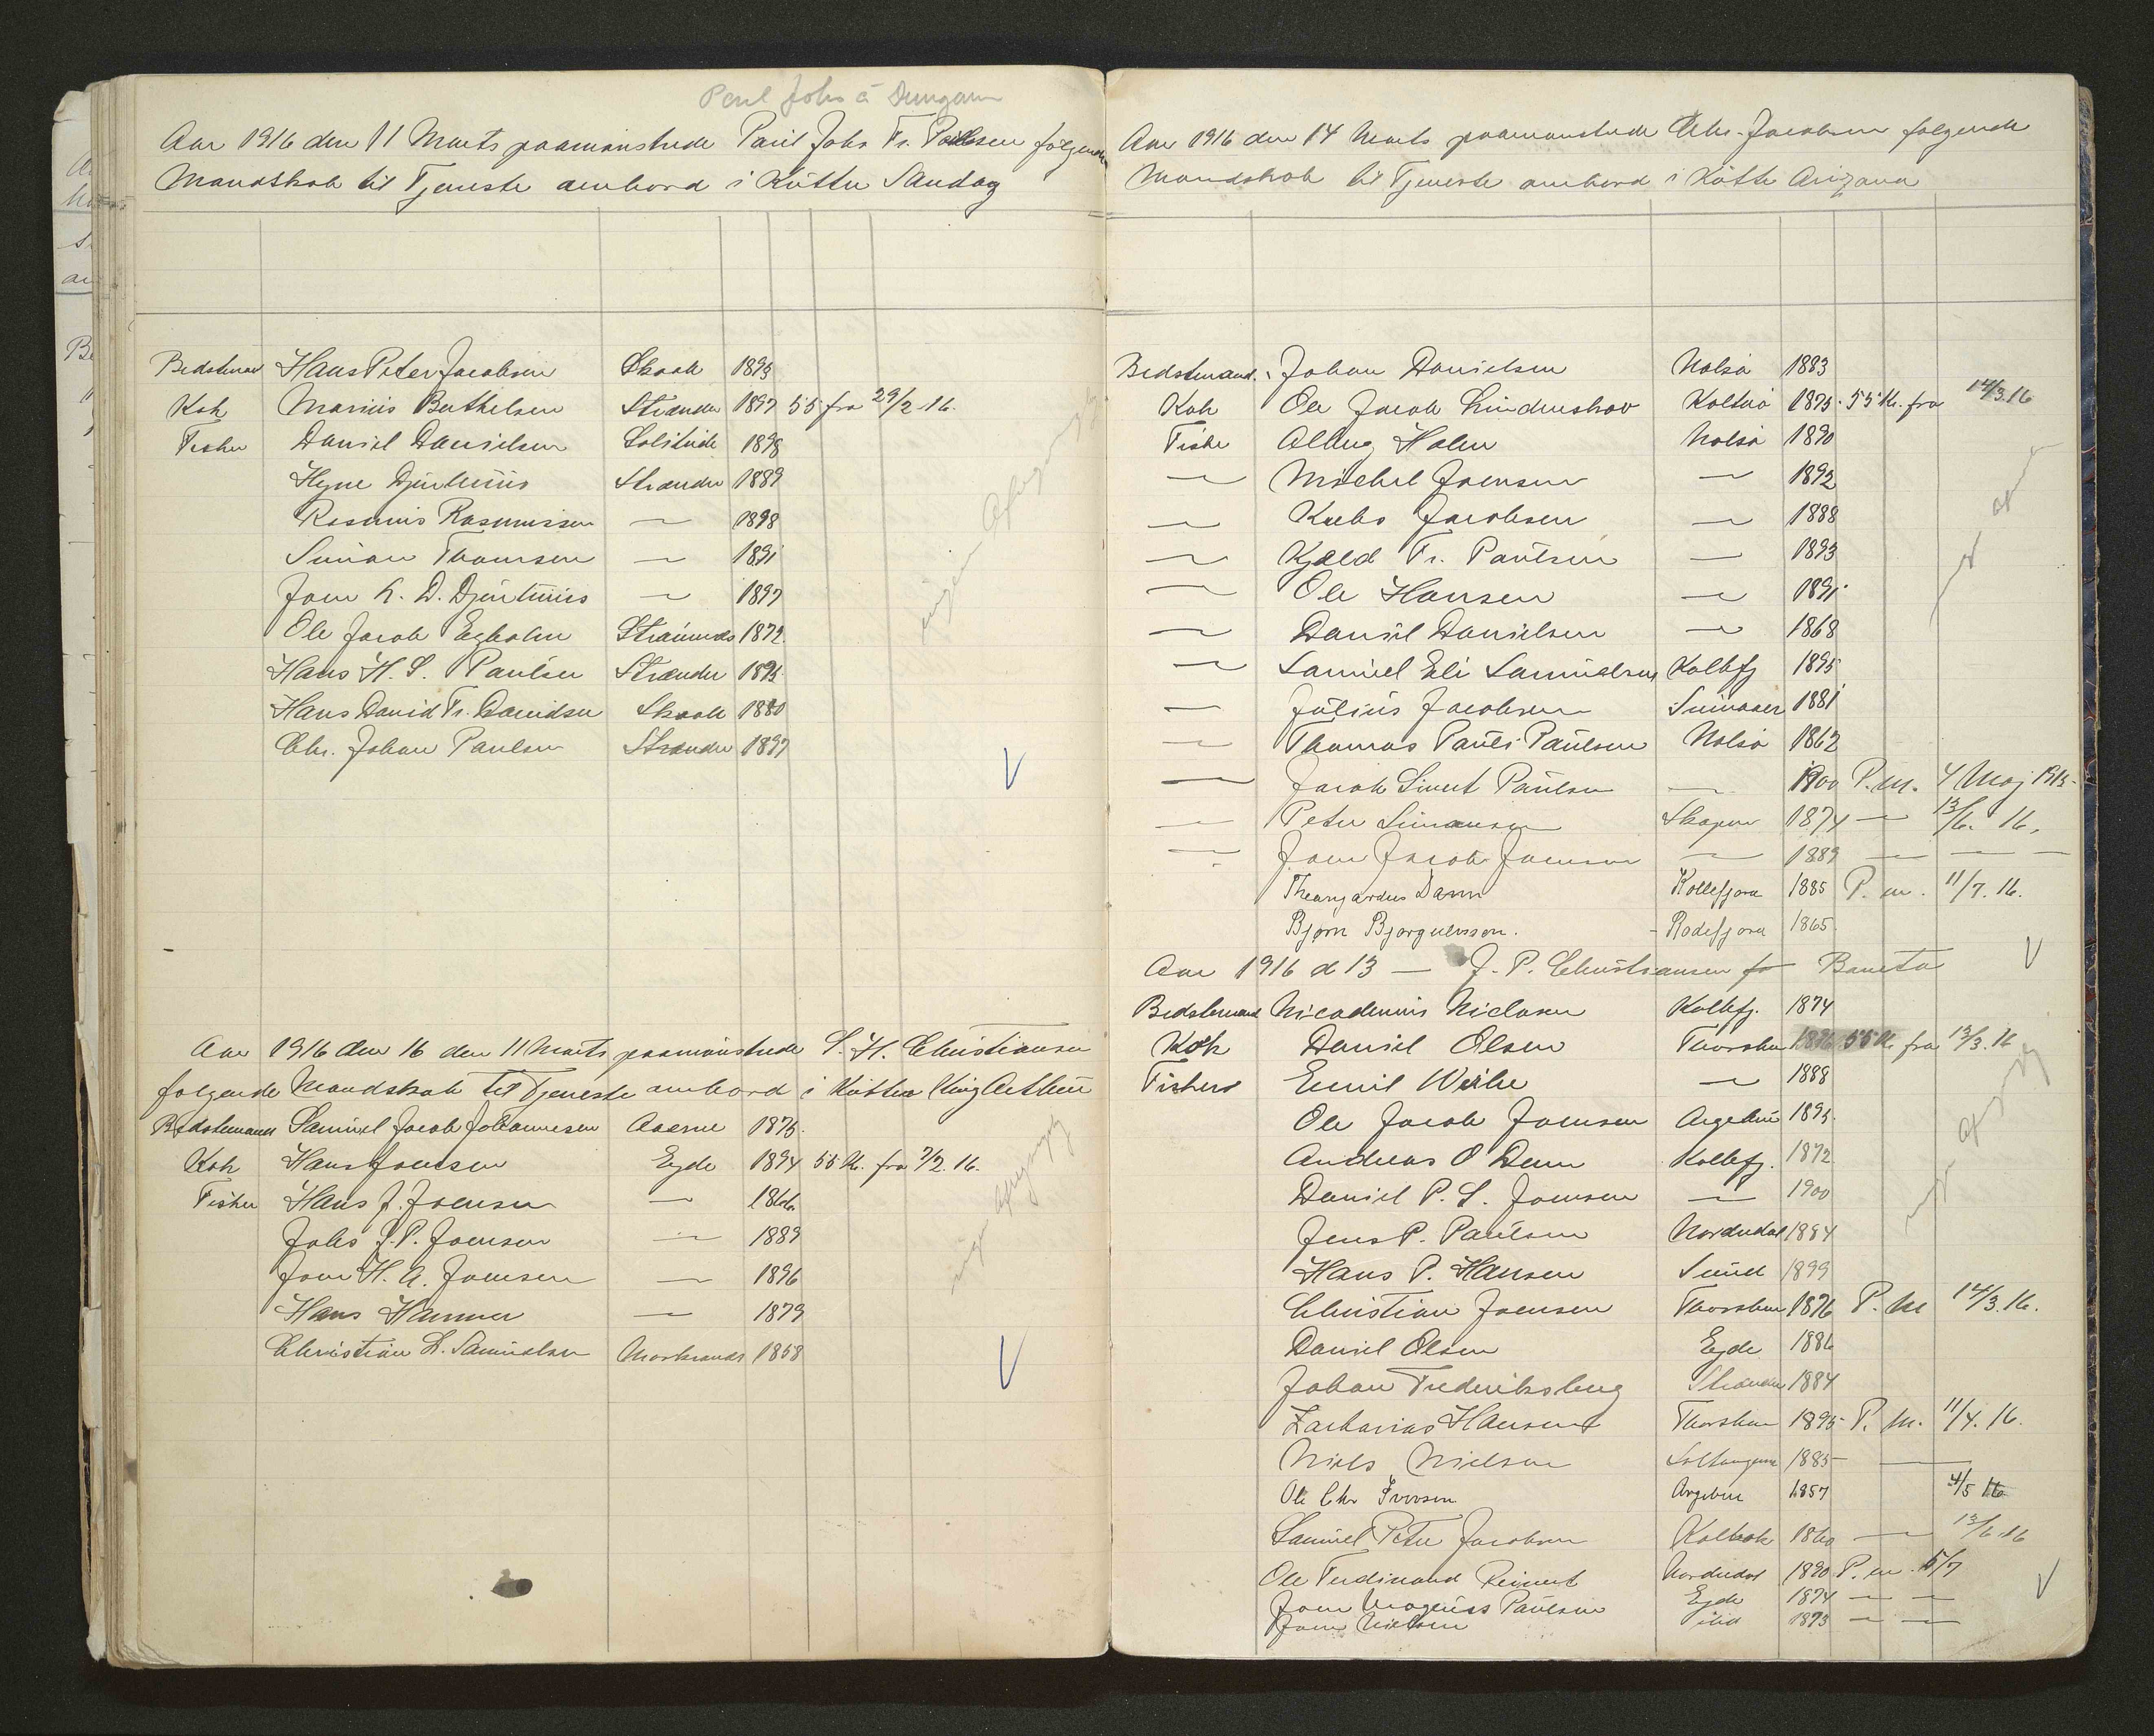 Poul Johs á Dungann
Aar 1916 den 11 Marts paamönstrede Paul Johs Fr. Paulsen følgende
Mandskab til Tjeneste ombord i Kutter Sandoy
Bedstemand Hans Peter Jacobsen Skaale 1893
Kok Marius Berthelsen Strender 1897 55 fra 29/2-16.
Fisker Daniel Danielsen Solitude 1898
Hejne Djurhuus Strender 1889
Rasmus Rasmussen — 1898
Simon Thomsen — 1891
Joen H. D. Djurhuus — 1897
Ole Jacob Egholm 1872
Hans H. S. Paulsen Strender 1895
Hans David Fr. Davidsen Skaale 1880
Chr. Johan Paulsen Strender 1897
ingen Afregning
Aar 1916 den 16 den 11 Marts paamönstrede S. H. Christiansen
følgende Mandskab til Tjeneste ombord i Kutter King Arthur
Bedstemand Samuel Jacob Johannesen 1875
Kok Hans Joensen Ejde 1894 55 Kr. fra 7/2.16.
Fisker Hans J. Joensen — 1866
Johs J. P. Joensen — 1889
Joen H. A. Joensen — 1896
Hans Hammer — 1879
Christian L. Samuelsen 1858
ingen Afregning
Aar 1916 den 14 Marts paamönstrede Chr. Jacobsen følgende
Mandskab til Tjeneste ombord i Kutter Arizona
Bedstemand. Johan Danielsen Nolsö 1883
Kok Ole Jacob Lindenskov Koltur 1895 55 Kr. fra 14/3.16
Fisker Holm Nolsö 1890
— Michel Joensen — 1892
— Krebs Jacobsen — 1888
— Kjeld Fr. Paulsen — 1893
— Ole Hansen — 1891
— Daniel Danielsen — 1868
— Samuel Eli Samuelsen Kollefj 1895
— Julius Jacobsen 1881
— Thomas Pauli Paulsen Nolsö 1862
— Jacob Sivert Paulsen — 1900 P.M. 4 Maj 1915
— Peter Simonsen Skopen 1874 — 13/6. 16.
— Joen Jacob Joensen — 1889 — — —
Dam Kollefjord 1885 P.m. 11/7. 16.
Bjørn Bjorgulvsson. Rodefjord 1865
Aar 1916 d 13 — J. P. Christiansen fo Bonita
Bedstemand Nicodemus Niclasen Kollefj. 1874
Kok Daniel Olsen Thorshn 1896 55 Kr. fra 13/3.16
Fisker Emil Weihe — 1888
Ole Jacob Joensen Argebru 1895
Andreas O Dam Kollefj. 1872
Daniel P. S. Joensen — 1900
Jens P. Paulsen Nordredal 1884
Hans P. Hansen Sund 1899
Christian Joensen Thorshn 1876 P.M 14/3.16.
Daniel Olsen Ejde 1886
Johan Frederiksberg Strender 1884
Zacharias Hansen Thorshn 1895 P.M. 11/4.16.
Niels Nielsen Saltangen 1885 —
Ole Chr Iversen Argebru 1857 4/5 16
Samuel Peter Jacobsen Kolbak 1860 — 13/6.16
Ole Ferdinand Reinert Nordredal 1890 P.m. 5/7
Joen Magnus Paulsen Ejde 1874 — —
Joen Nielsen 1873 — —